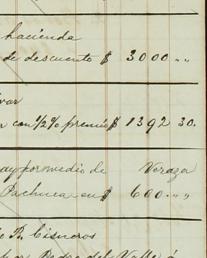 hacienda
de descuento $ 3000 " "
con 1/2% premio $ 1392 30.
por medio de Veraza
Pachuca en $ 600 " "
R. Cisneros
Pedro del Valle á